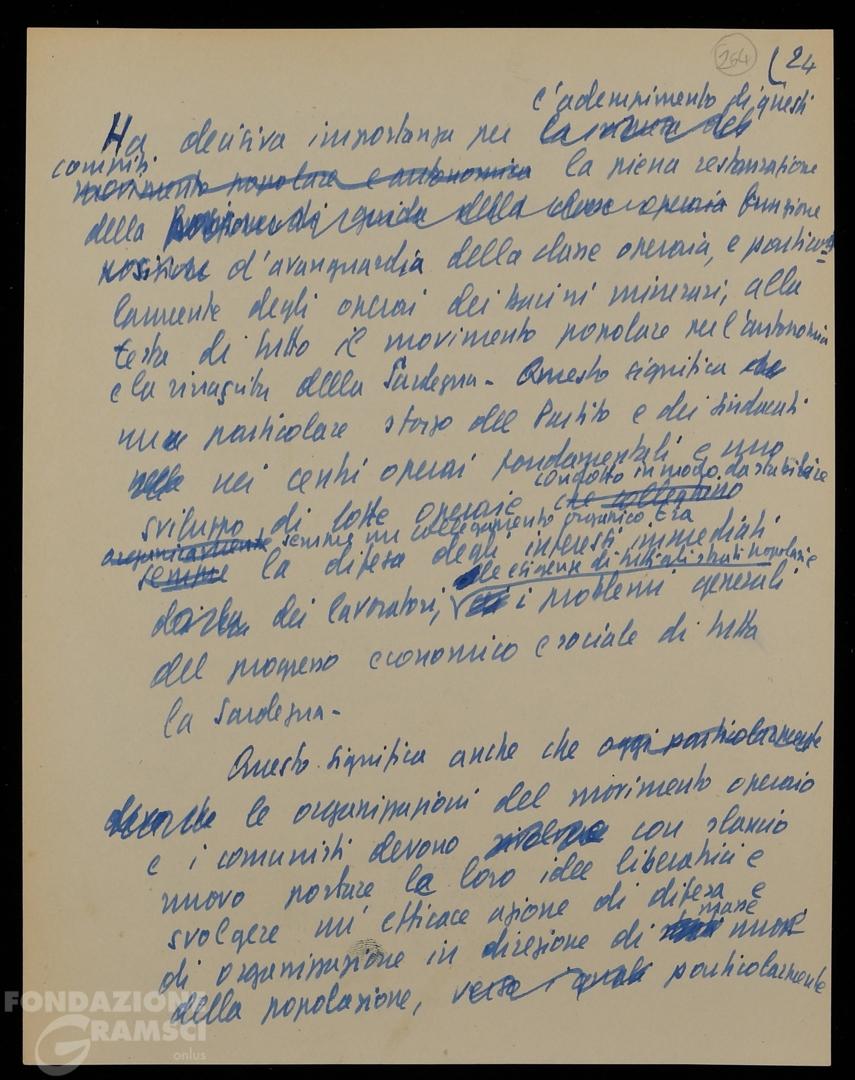 264
(24
l'adempimento di questi
Ha decisiva importanza per la del
compiti
movimento popolare e autonomico la piena restaurazione
della posizione di guida della classe operaia funzione
posizione d'avanguardia della classe operaia, e partico-
larmente degli operai dei bacini minerari, alla
testa di tutto il movimento popolare per l'autonomia
e la rinascita della Sardegna - Questo significa che
un particolare sforzo del Partito e dei Sindacati
nei centri operai fondamentali e uno
condotto in modo da stabilire
sviluppo di lotte operaie che colleghino
organicamente sempre un collegamento organico tra
sempre la difesa degli interessi immediati
le esigenze di tutti gli strati popolari e
dei lavoratori, i problemi generali
del progresso economico e sociale di tutta
la Sardegna -
Questo significa anche che oggi particolarmente
le organizzazioni del movimento operaio
e i comunisti devono con slancio
nuovo portare le loro idee liberatrici e
svolgere un'efficace azione di difesa e
masse
di organizzazione in direzione di nuove
della popolazione, verso i quali particolarmente
FONDAZIONE
GRAMSCI
onlus